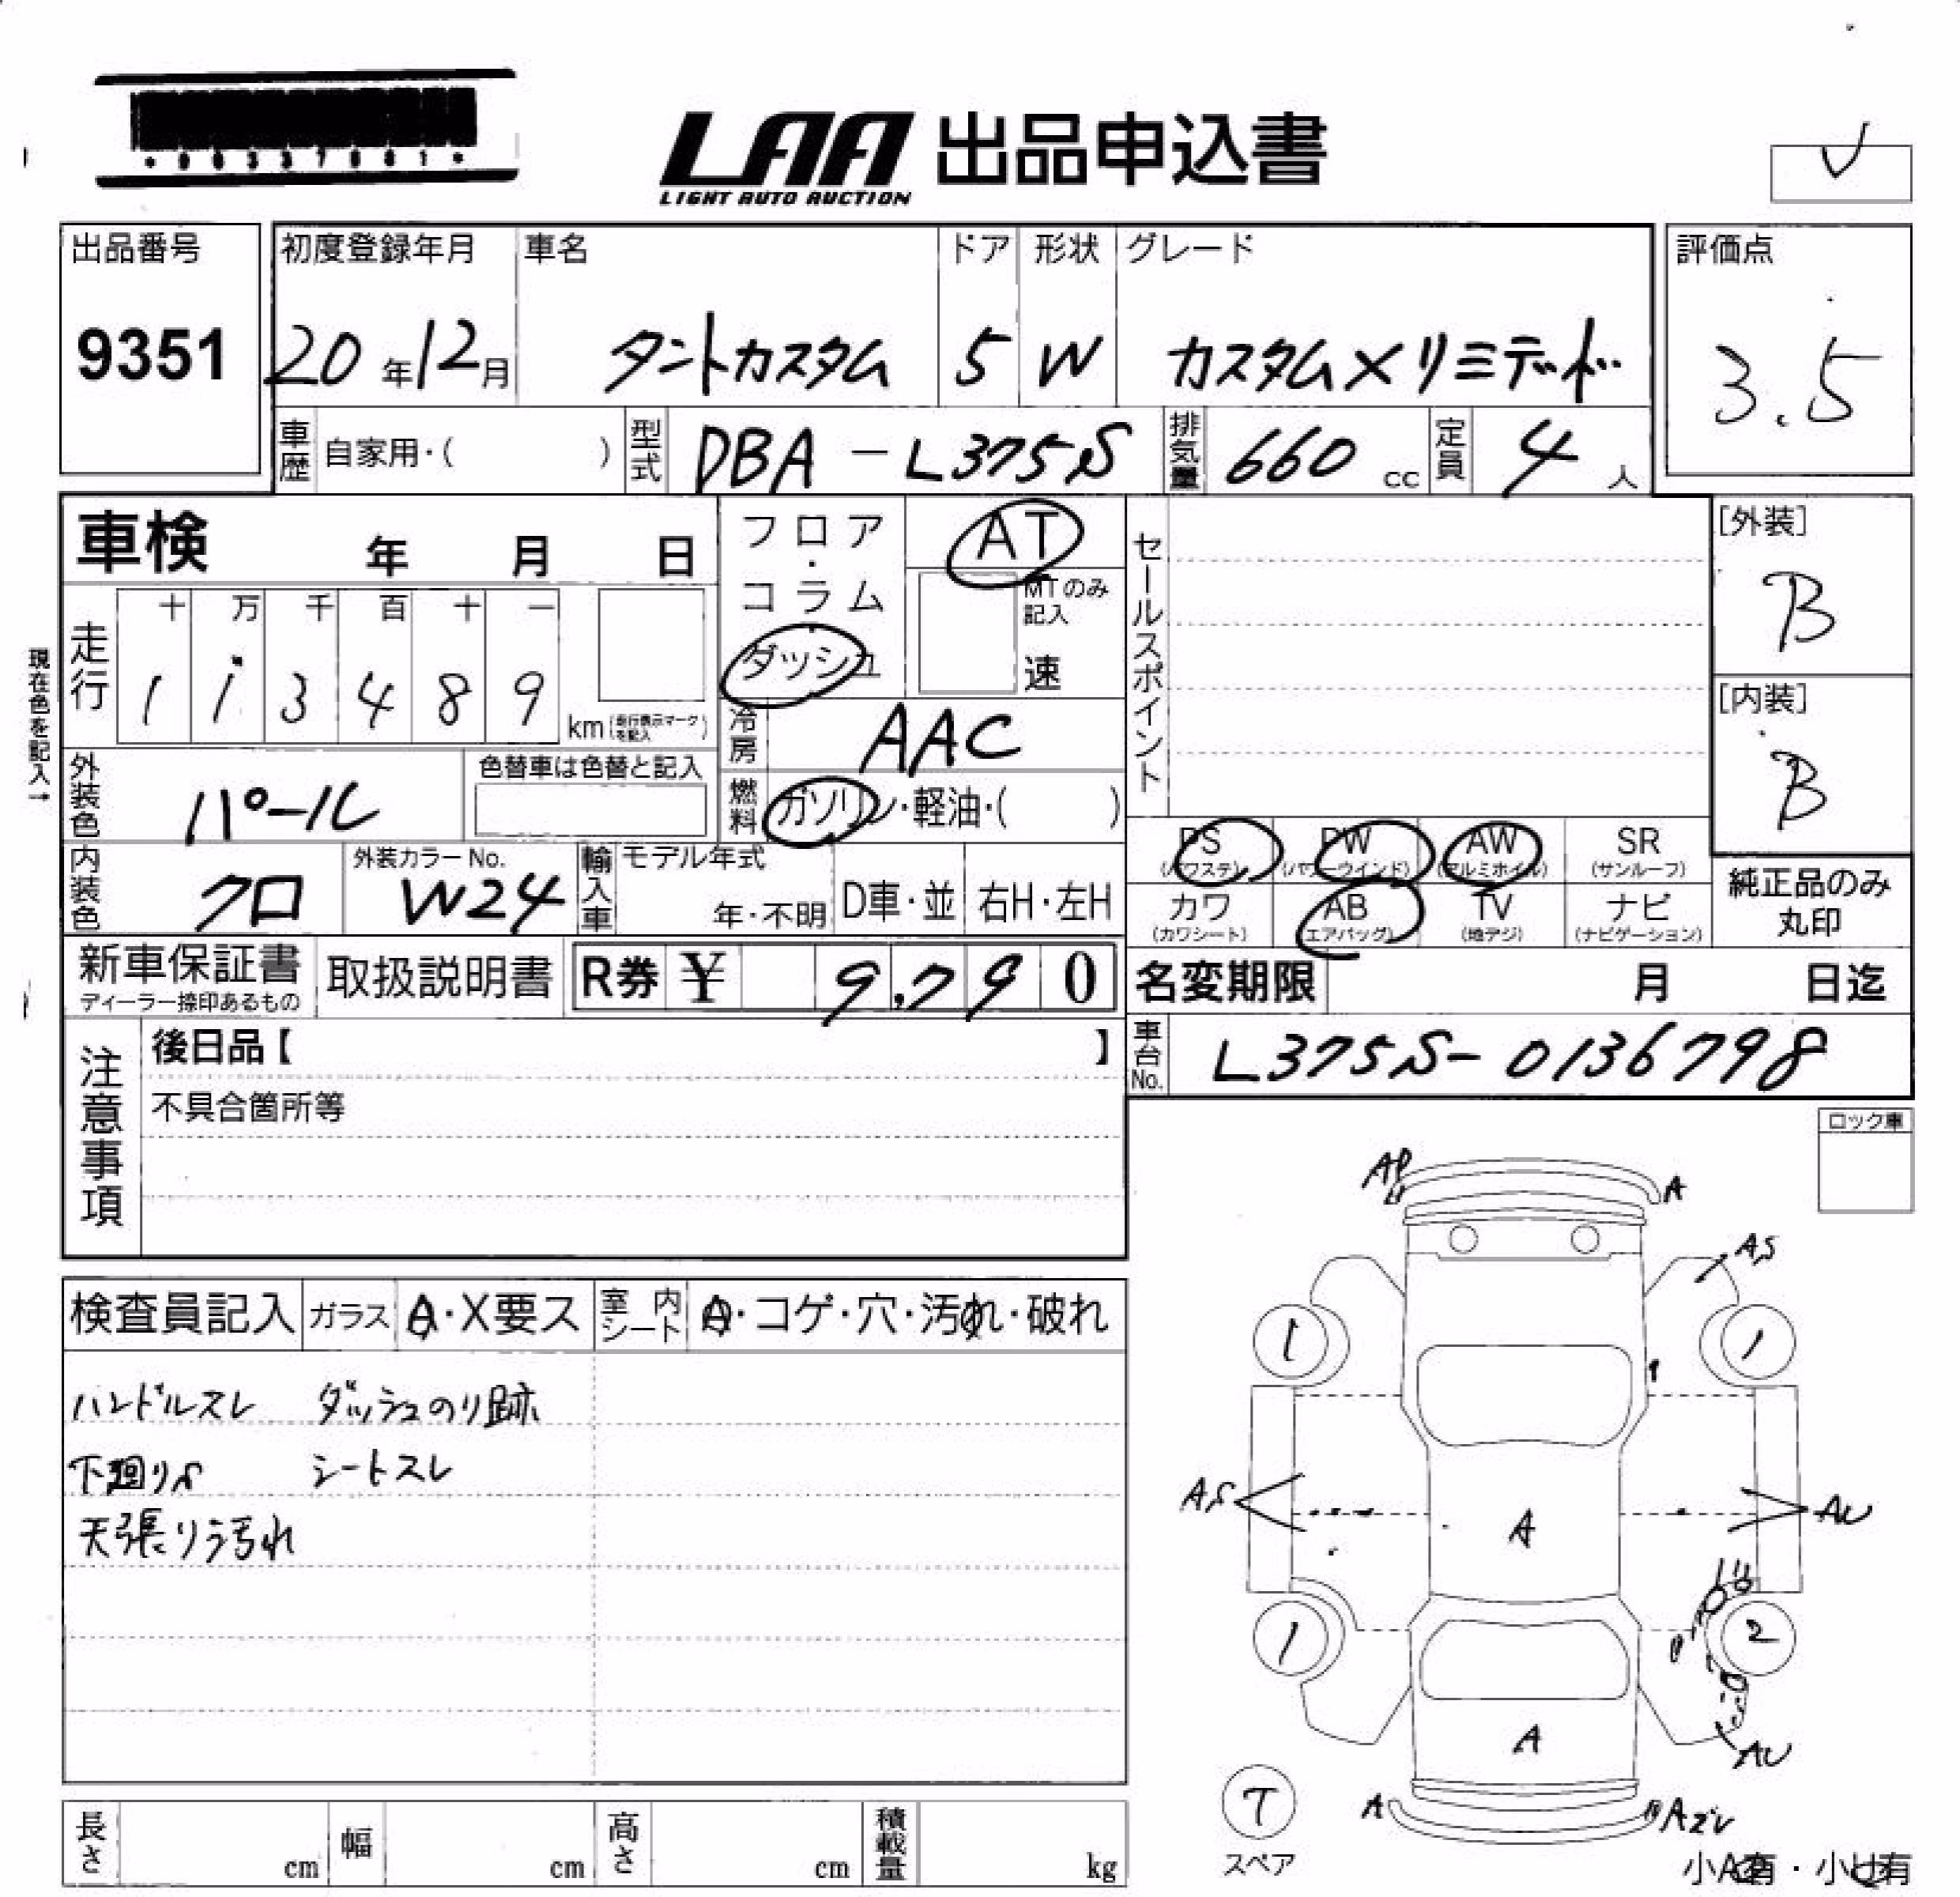 LAA 出品申込書
LIGHT AUTO AUCTION
出品番号 初度登録年月 車名 ドア 形状 グレード 評価点
9351 20年12月 タントカスタム 5 W カスタムXリミテッド 3.5
車歴 自家用・( ) 型式 DBA-L375S 排気量 660 cc 定員 4 人
車検 年 月 日
フロア・コラム・ダッシュ
AT
MTのみ記入
速
セールスポイント
[外装]
B
[内装]
B
現在色を記入→
走行 十 万 千 百 十 一
1 1 3 4 8 9 km(走行表示マークを記入)
冷房 AAC
外装色 パール
色替車は色替と記入
燃料 ガソリン・軽油・( )
PS (パワステ) PW (パワーウインド) AW (アルミホイル) SR (サンルーフ)
カワ (カワシート) AB (エアバッグ) TV (地デジ) ナビ (ナビゲーション)
純正品のみ
丸印
内装色 クロ
外装カラーNo.
W24
輸入車 モデル年式
年・不明 D車・並 右H・左H
新車保証書
ディーラー捺印あるもの
取扱説明書 R券 ¥ 9,790
名変期限 月 日迄
車台No. L375S-0136798
注意事項
後日品【 】
不具合箇所等
ロック車
検査員記入 ガラス A・X要ス 室内シート A・コゲ・穴・汚れ・破れ
ハンドルスレ ダッシュのり跡
下廻りS シートスレ
天張り汚れ
AP A
AS
1 1
AS A AU
1 2
P
A AU
T
スペア
A Aズレ
小A有・小U有
長さ cm 幅 cm 高さ cm 積載量 kg